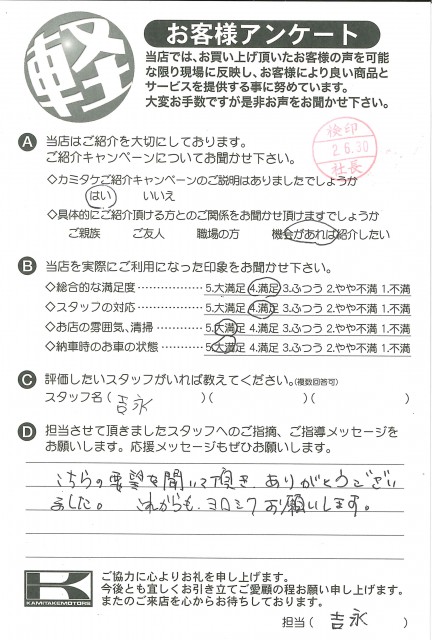 軽
お客様アンケート
当店では、お買い上げ頂いたお客様の声を可能
な限り現場に反映し、お客様により良い商品と
サービスを提供する事に努めています。
大変お手数ですが是非お声をお聞かせ下さい。
検印
2.6.30
社長
A 当店はご紹介を大切にしております。
ご紹介キャンペーンについてお聞かせ下さい。
◇カミタケご紹介キャンペーンのご説明はありましたでしょうか
はい いいえ
◇具体的にご紹介頂ける方とのご関係をお聞かせ頂けますでしょうか
ご親族 ご友人 職場の方 機会があれば紹介したい
B 当店を実際にご利用になった印象をお聞かせ下さい。
◇総合的な満足度 ……………… 5.大満足 4.満足 3.ふつう 2.やや不満 1.不満
◇スタッフの対応 ……………… 5.大満足 4.満足 3.ふつう 2.やや不満 1.不満
◇お店の雰囲気、清掃 ………… 5.大満足 4.満足 3.ふつう 2.やや不満 1.不満
◇納車時のお車の状態 ………… 5.大満足 4.満足 3.ふつう 2.やや不満 1.不満
C 評価したいスタッフがいれば教えてください。(複数回答可)
スタッフ名( 吉永 )( )( )
D 担当させて頂きましたスタッフへのご指摘、ご指導メッセージを
お願いします。応援メッセージもぜひお願いします。
こちらの要望を聞いて頂き、ありがとうござい
ました。 これからも、ヨロシクお願いします。
K
KAMITAKE MOTORS
ご協力に心よりお礼を申し上げます。
今後とも宜しくお引き立てご愛顧の程お願い申し上げます。
またのご来店を心からお待ちしております。
担当( 吉永 )